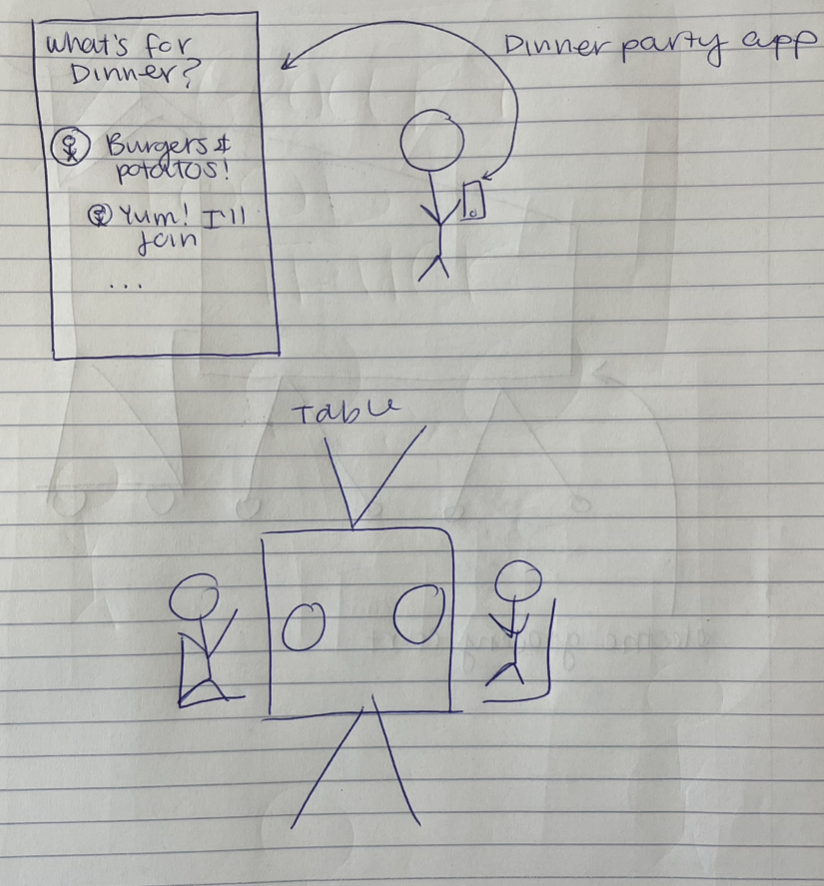 what's for
Dinner?
Burgers &
potatos!
Yum! I'll
Join
...
Dinner party app
Table